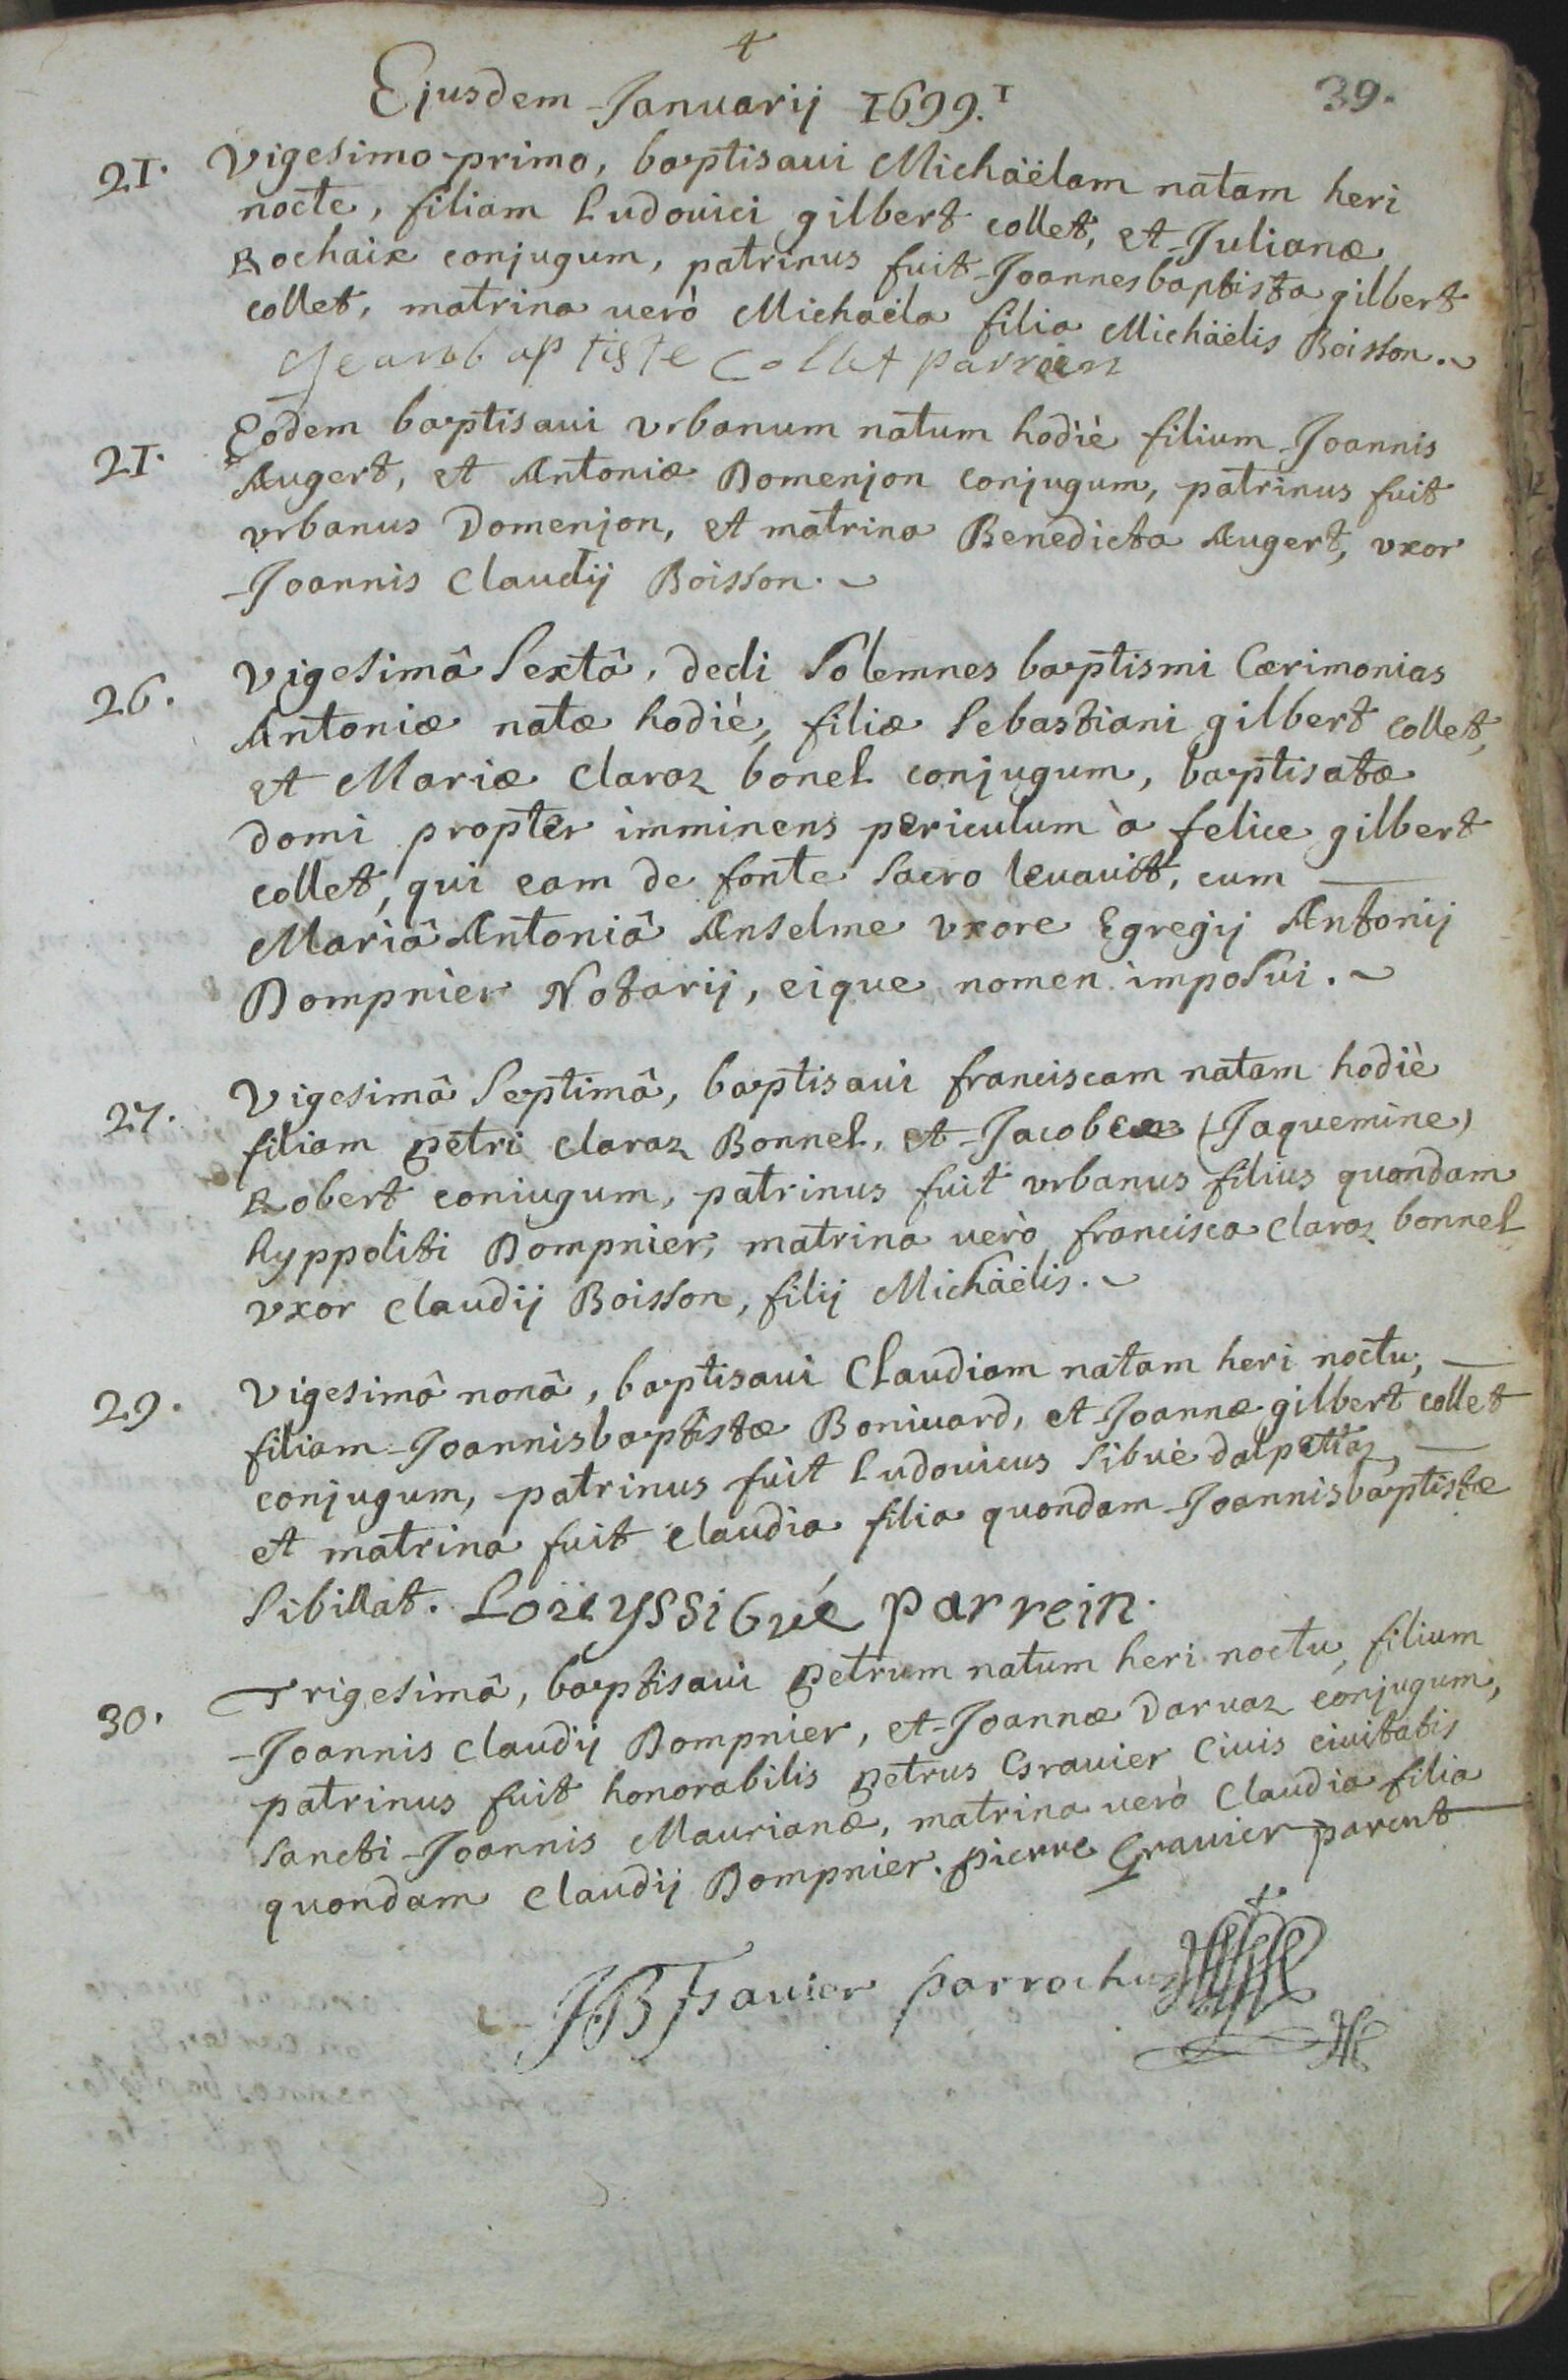 +
39.
Ejusdem Januarij 1699.
21. Vigesimo primo, baptisaui Michaëlam natam heri
nocte, filiam Ludouici gilbert collet, et Julianæ
Rochaix conjugum, patrinus fuit Joannesbaptista gilbert
collet, matrina uerò Michaëla filia Michaëlis Boisson.
Jeanbaptiste Collet parrein
21. Eodem baptisaui vrbanum natum hodiè filium Joannis
Augert, et Antoniæ Domenjon conjugum, patrinus fuit
vrbanus Domenjon, et matrina Benedicta Augert, vxor
Joannis Claudij Boisson.
26. Vigesimâ Sextâ, dedi Solemnes baptismi Cærimonias
Antoniæ natæ hodiè, filiæ Sebastiani gilbert collet,
et Mariæ Claraz bonel conjugum, baptisatæ
domi propter imminens periculum à felice gilbert
collet, qui eam de fonte Sacro leuauit, cum
Mariâ Antoniâ Anselme vxore Egregij Antonij
Dompnier Notarij, eique nomen imposui.
27. Vigesimâ Septimâ, baptisaui franciscam natam hodiè
filiam petri Claraz Bonnel, et Jacobeæ (Jaquemine)
Robert coniugum, patrinus fuit vrbanus filius quondam
hyppoliti Dompnier, matrina uerò francisca Claraz bonnel
vxor Claudij Boisson, filij Michaëlis.
29. Vigesimâ nonâ, baptisaui Claudiam natam heri noctu,
filiam Joannisbaptistæ Boniuard, et Joannæ gilbert collet
conjugum, patrinus fuit Ludouicus Sibuè dalpettaz,
et matrina fuit Claudia filia quondam Joannisbaptistæ
Sibillat. Loüys Sibué parrein.
30. Trigesimâ, baptisaui petrum natum heri noctu, filium
Joannis Claudij Dompnier, et Joannæ Daruaz conjugum,
patrinus fuit honorabilis petrus Grauier Ciuis ciuitatis
Sancti Joannis Maurianæ, matrina uerò Claudia filia
quondam Claudij Dompnier. pierre Grauier
JB parrochus